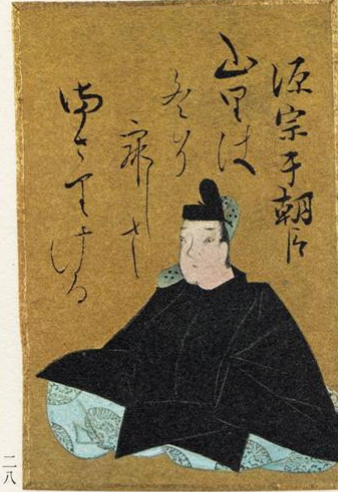 源宗于朝臣
山里は
冬そ
寂しさ
まさりける
二八